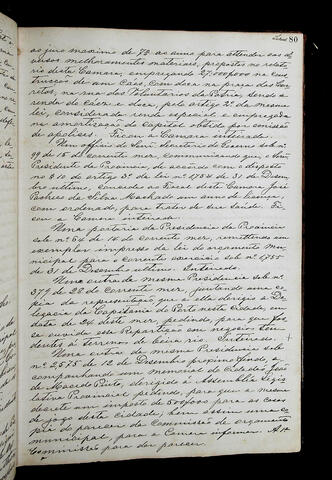 80
ao juro maximo de 7% ao anno para attender aos di-
versos melhoramentos materiaes, propostos no relato-
rio desta Camara, empregando 27:000$000 na cons-
trucção de um Cáes, Com doca na praça dos Cor-
reitos, na rua dos Voluntarios da Patria, sendo a
renda do Cáes e doca, pelo artigo 2º da mesma
lei, considerada renda especial e empregada
na amortização do Capital obtido por emissão
de apolices. Ficou a Camara inteirada.
Um officio do Snr. Secretario do Governo sob nº
99 de 15 do corrente mez, communicando que o Snr.
Presidente da Provincia, de accordo com o disposto
no § 10 do artigo 3º da lei nº 1754 de 31 de Dezem-
bro ultimo, concedeu ao Fiscal desta Camara José
da Silva Machado um anno de licença,
com ordenado, para tratar de sua saude. Fi-
cou a Camara inteirada.
Uma portaria da Presidencia da Provincia
sob nº 54 de 14 do corrente mez, remettendo um
exemplar impresso da lei do orçamento mu-
nicipal para o corrente exercicio sob nº 1755
de 31 de Dezembro ultimo. Inteirada.
Uma outra da mesma Presidencia sob nº
379 de 28 do Corrente mez, juntando uma co-
pia da representação que a ella dirigio a De-
legacia da Capitania do Porto nesta Cidade, em
data de 26 deste mez, pedindo para que fos-
se ouvida essa Repartição em negocios ten-
dentes á terrenos de beira rio. Inteirada.
Uma outra da mesma Presidencia sob
nº 2,575 de 12 de Dezembro proximo findo, a-
companhando um memorial do Cidadão João
de Macedo Pinto, dirigido á Assembléa Legis-
lativa Provincial pedindo, para que a mesma
decrete um imposto de 500$000 para as casas
de jogo desta cidade; bem assim uma co-
pia do parecer da Commissão de orçamento
municipal, para a Camara informar. A
Commissão para dar parecer.